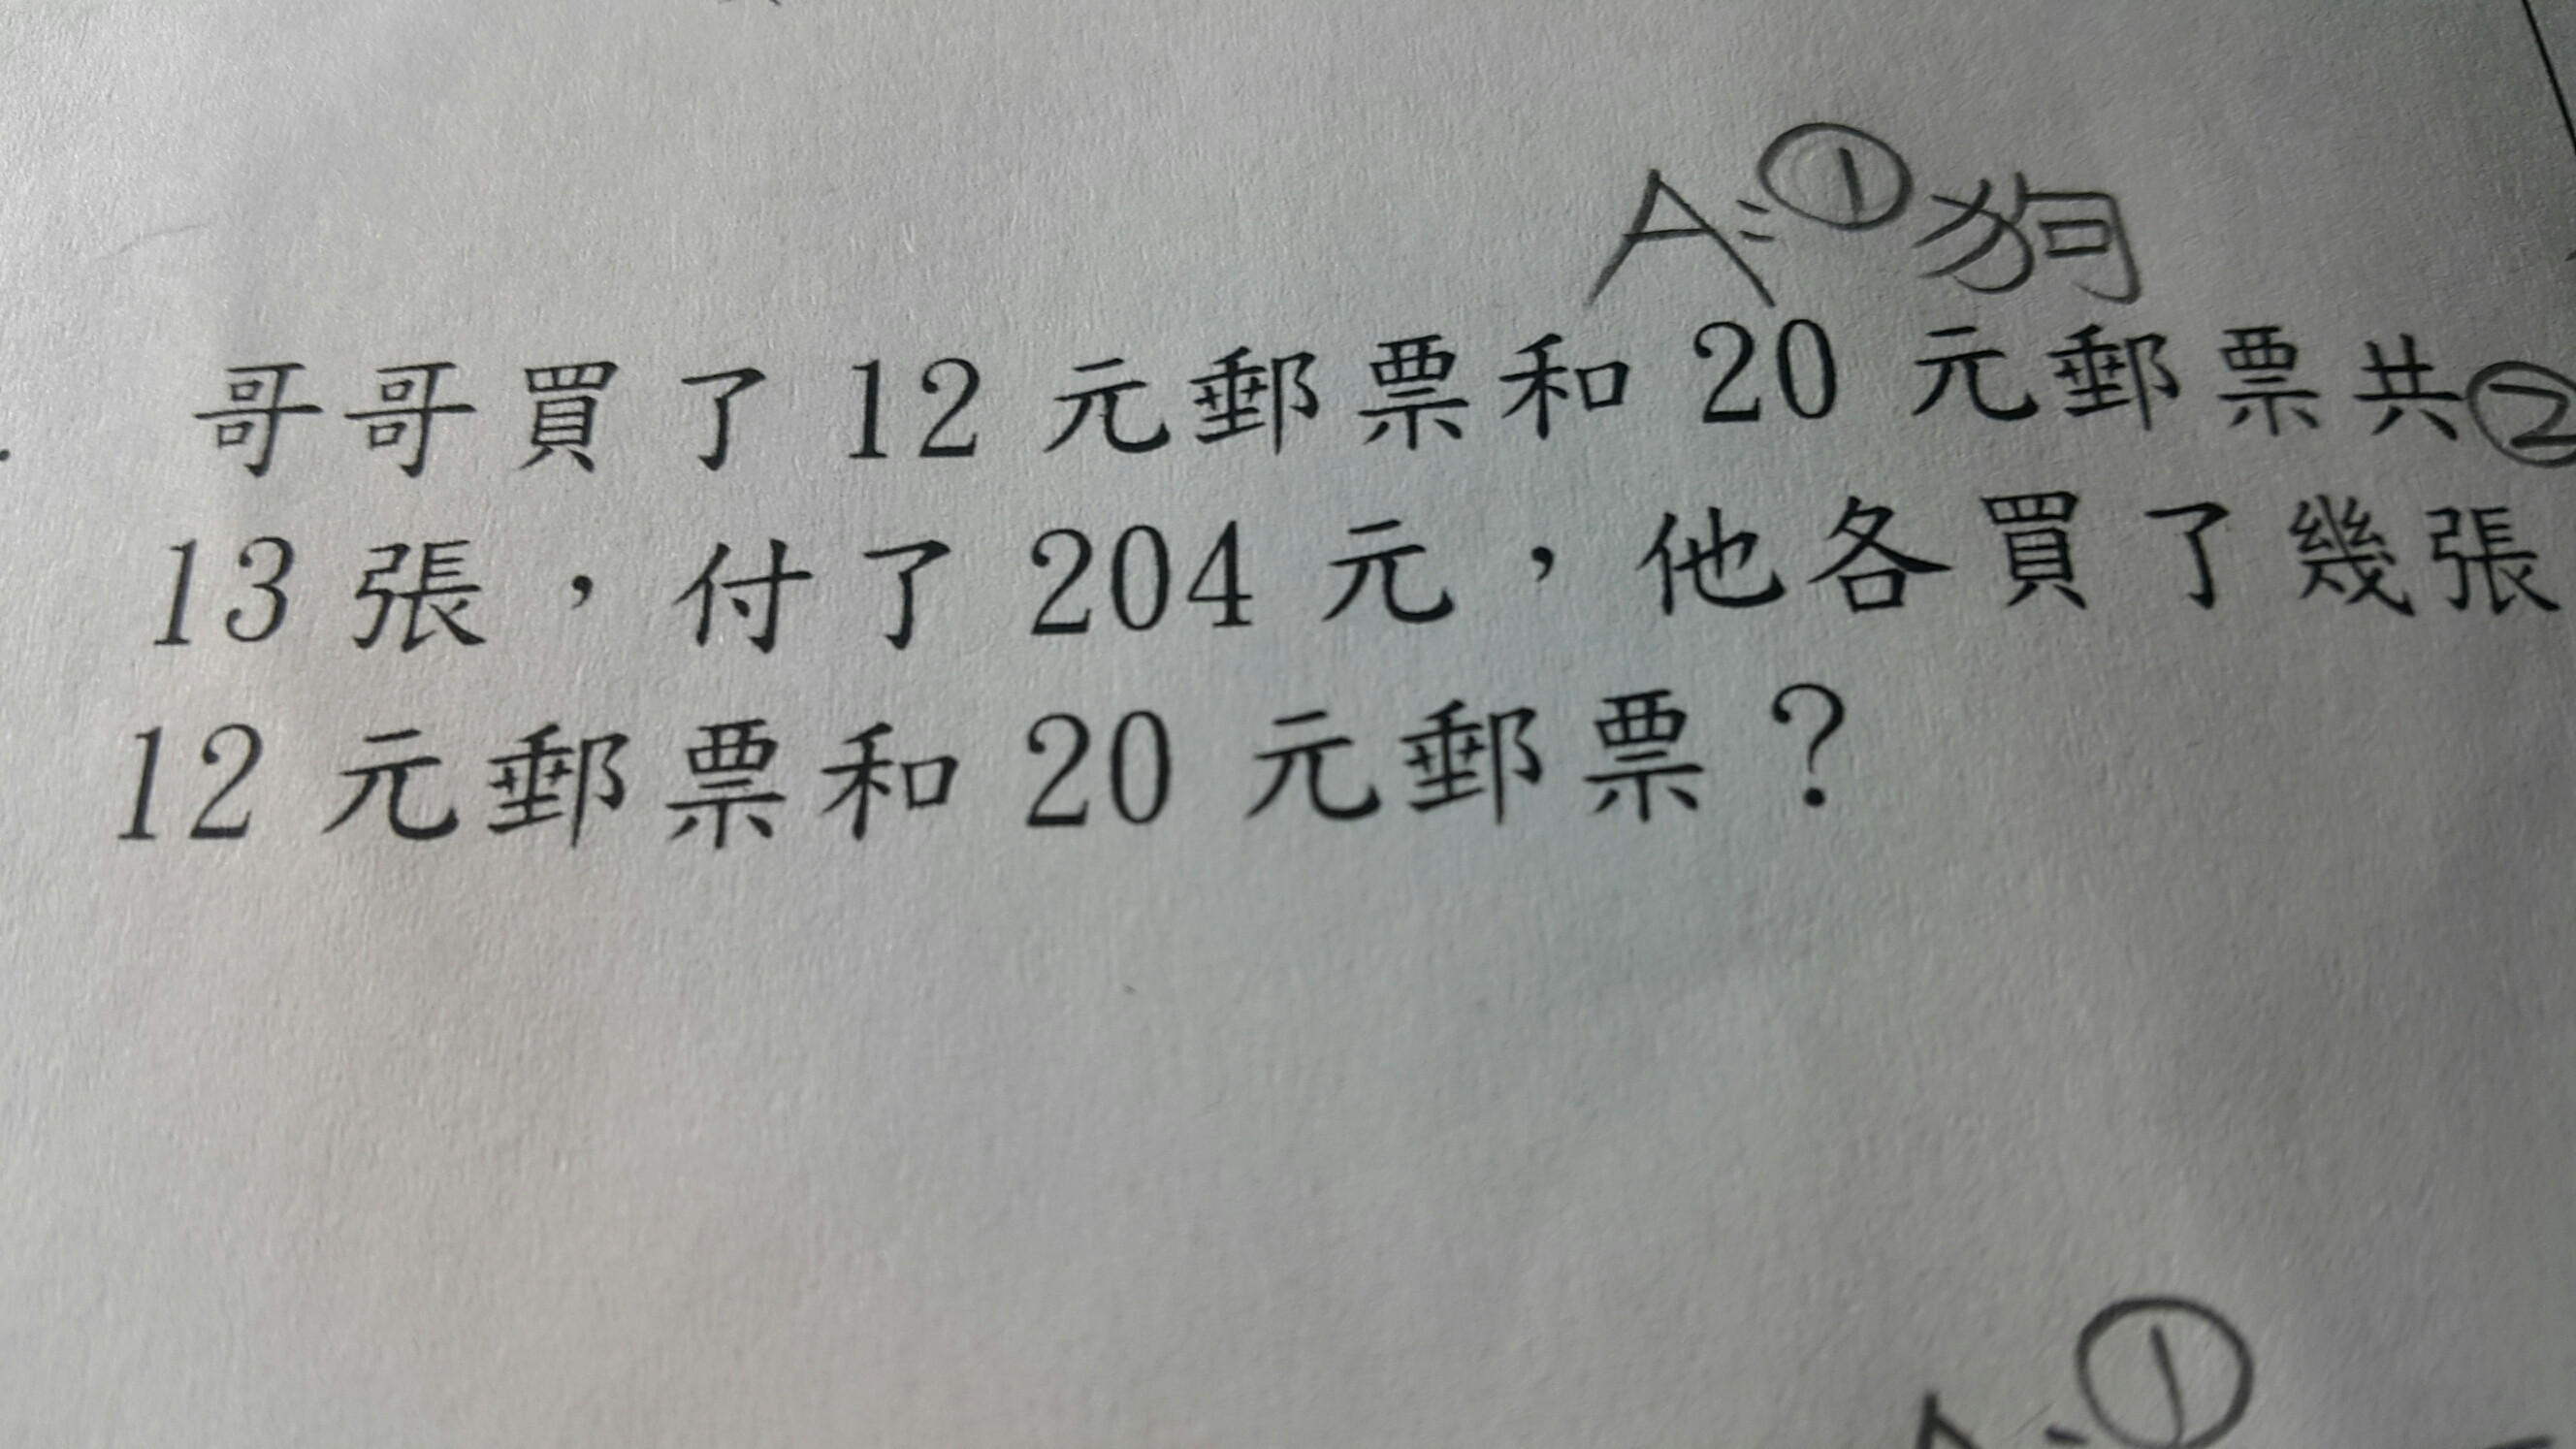 A:①狗
哥哥買了12元郵票和20元郵票共②
13張，付了204元，他各買了幾張
12元郵票和20元郵票？
①